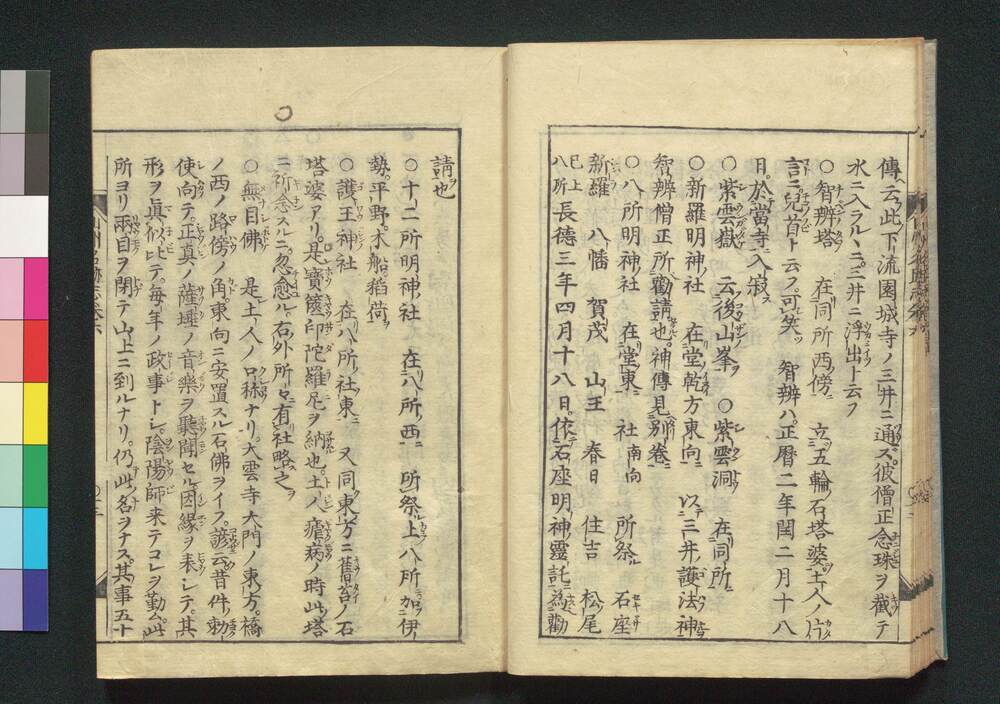 傳云此下流園城寺ノ三井ニ通ズ彼僧正念珠ヲ截テ
水ニ入ラルヽニ三井ニ浮出ト云フ
○智辨塔 在同所西傍 立五輪石塔婆土人ノ片
言ニ兒首ト云フ可笑 智辨ハ正暦二年閏二月十八
日於當寺ニ入寂ス
○紫雲嶽 云後山峯 ○紫雲洞 在同所
○新羅明神社 在堂乾方東向 以三井護法神
智辨僧正所勸請也神傳見別卷
○八所明神社 在堂東 社南向 所祭 石座
新羅 八幡 賀茂 山王 春日 住吉 松尾
已上八所 長德三年四月十八日依石座明神靈託為勸
請也
○十二所明神社 在八所西 所祭上八所加伊
勢平野木船稻荷
○護王神社 在八所社東 又同東方ニ舊苔ノ石
塔婆アリ是寶篋印陀羅尼ヲ納也土人瘧病ノ時此塔
ニ祈念スルニ忽愈ル右外所々有社略之
○無目佛 是土人ノ口称ナリ大雲寺大門ノ東方橋
ノ西ノ路傍ノ角東向ニ安置スル石佛ヲイフ諺云昔件勅
使向テ正真ノ薩埵ノ音樂ヲ聽聞セル因縁ヲ表シテ其
形ヲ真似ビテ毎年ノ政事トシ陰陽師来テコレヲ勤ム此
所ヨリ兩目ヲ閉テ山上ニ到ルナリ仍此名ヲナス其事五十